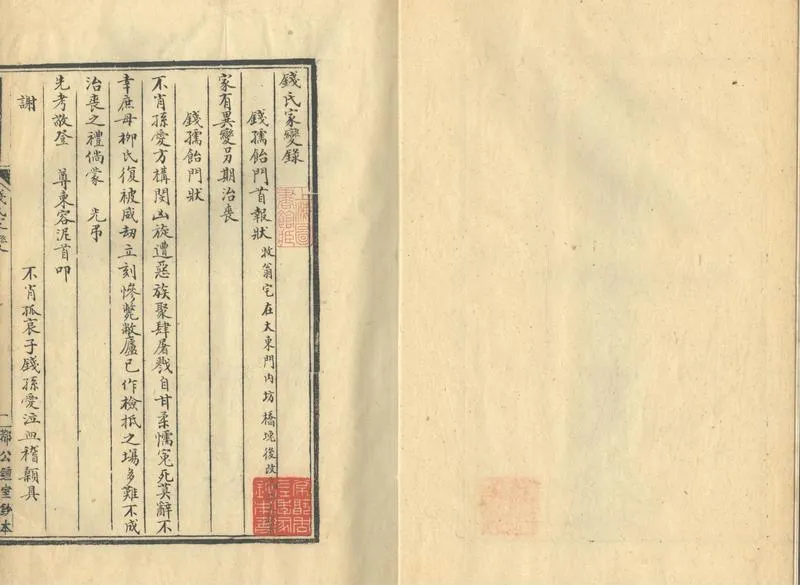 錢氏家變錄
錢孺飴門首報狀 牧翁宅在大東門內坊橋塊後改
家有異變另期治喪
錢孺飴門狀
不肖孫愛方構閔凶旋遭惡族聚肆屠戮自甘柔懦冤死莫辭不
幸庶母柳氏復被威劫立刻慘斃敝廬已作檢抵之場多難不成
治喪之禮倘蒙 光弔
先考敬登 尊柬容泥首叩
謝
不肖孤哀子錢孫愛泣血稽顙具
錢氏家變
一
鄰公鐘室鈔本